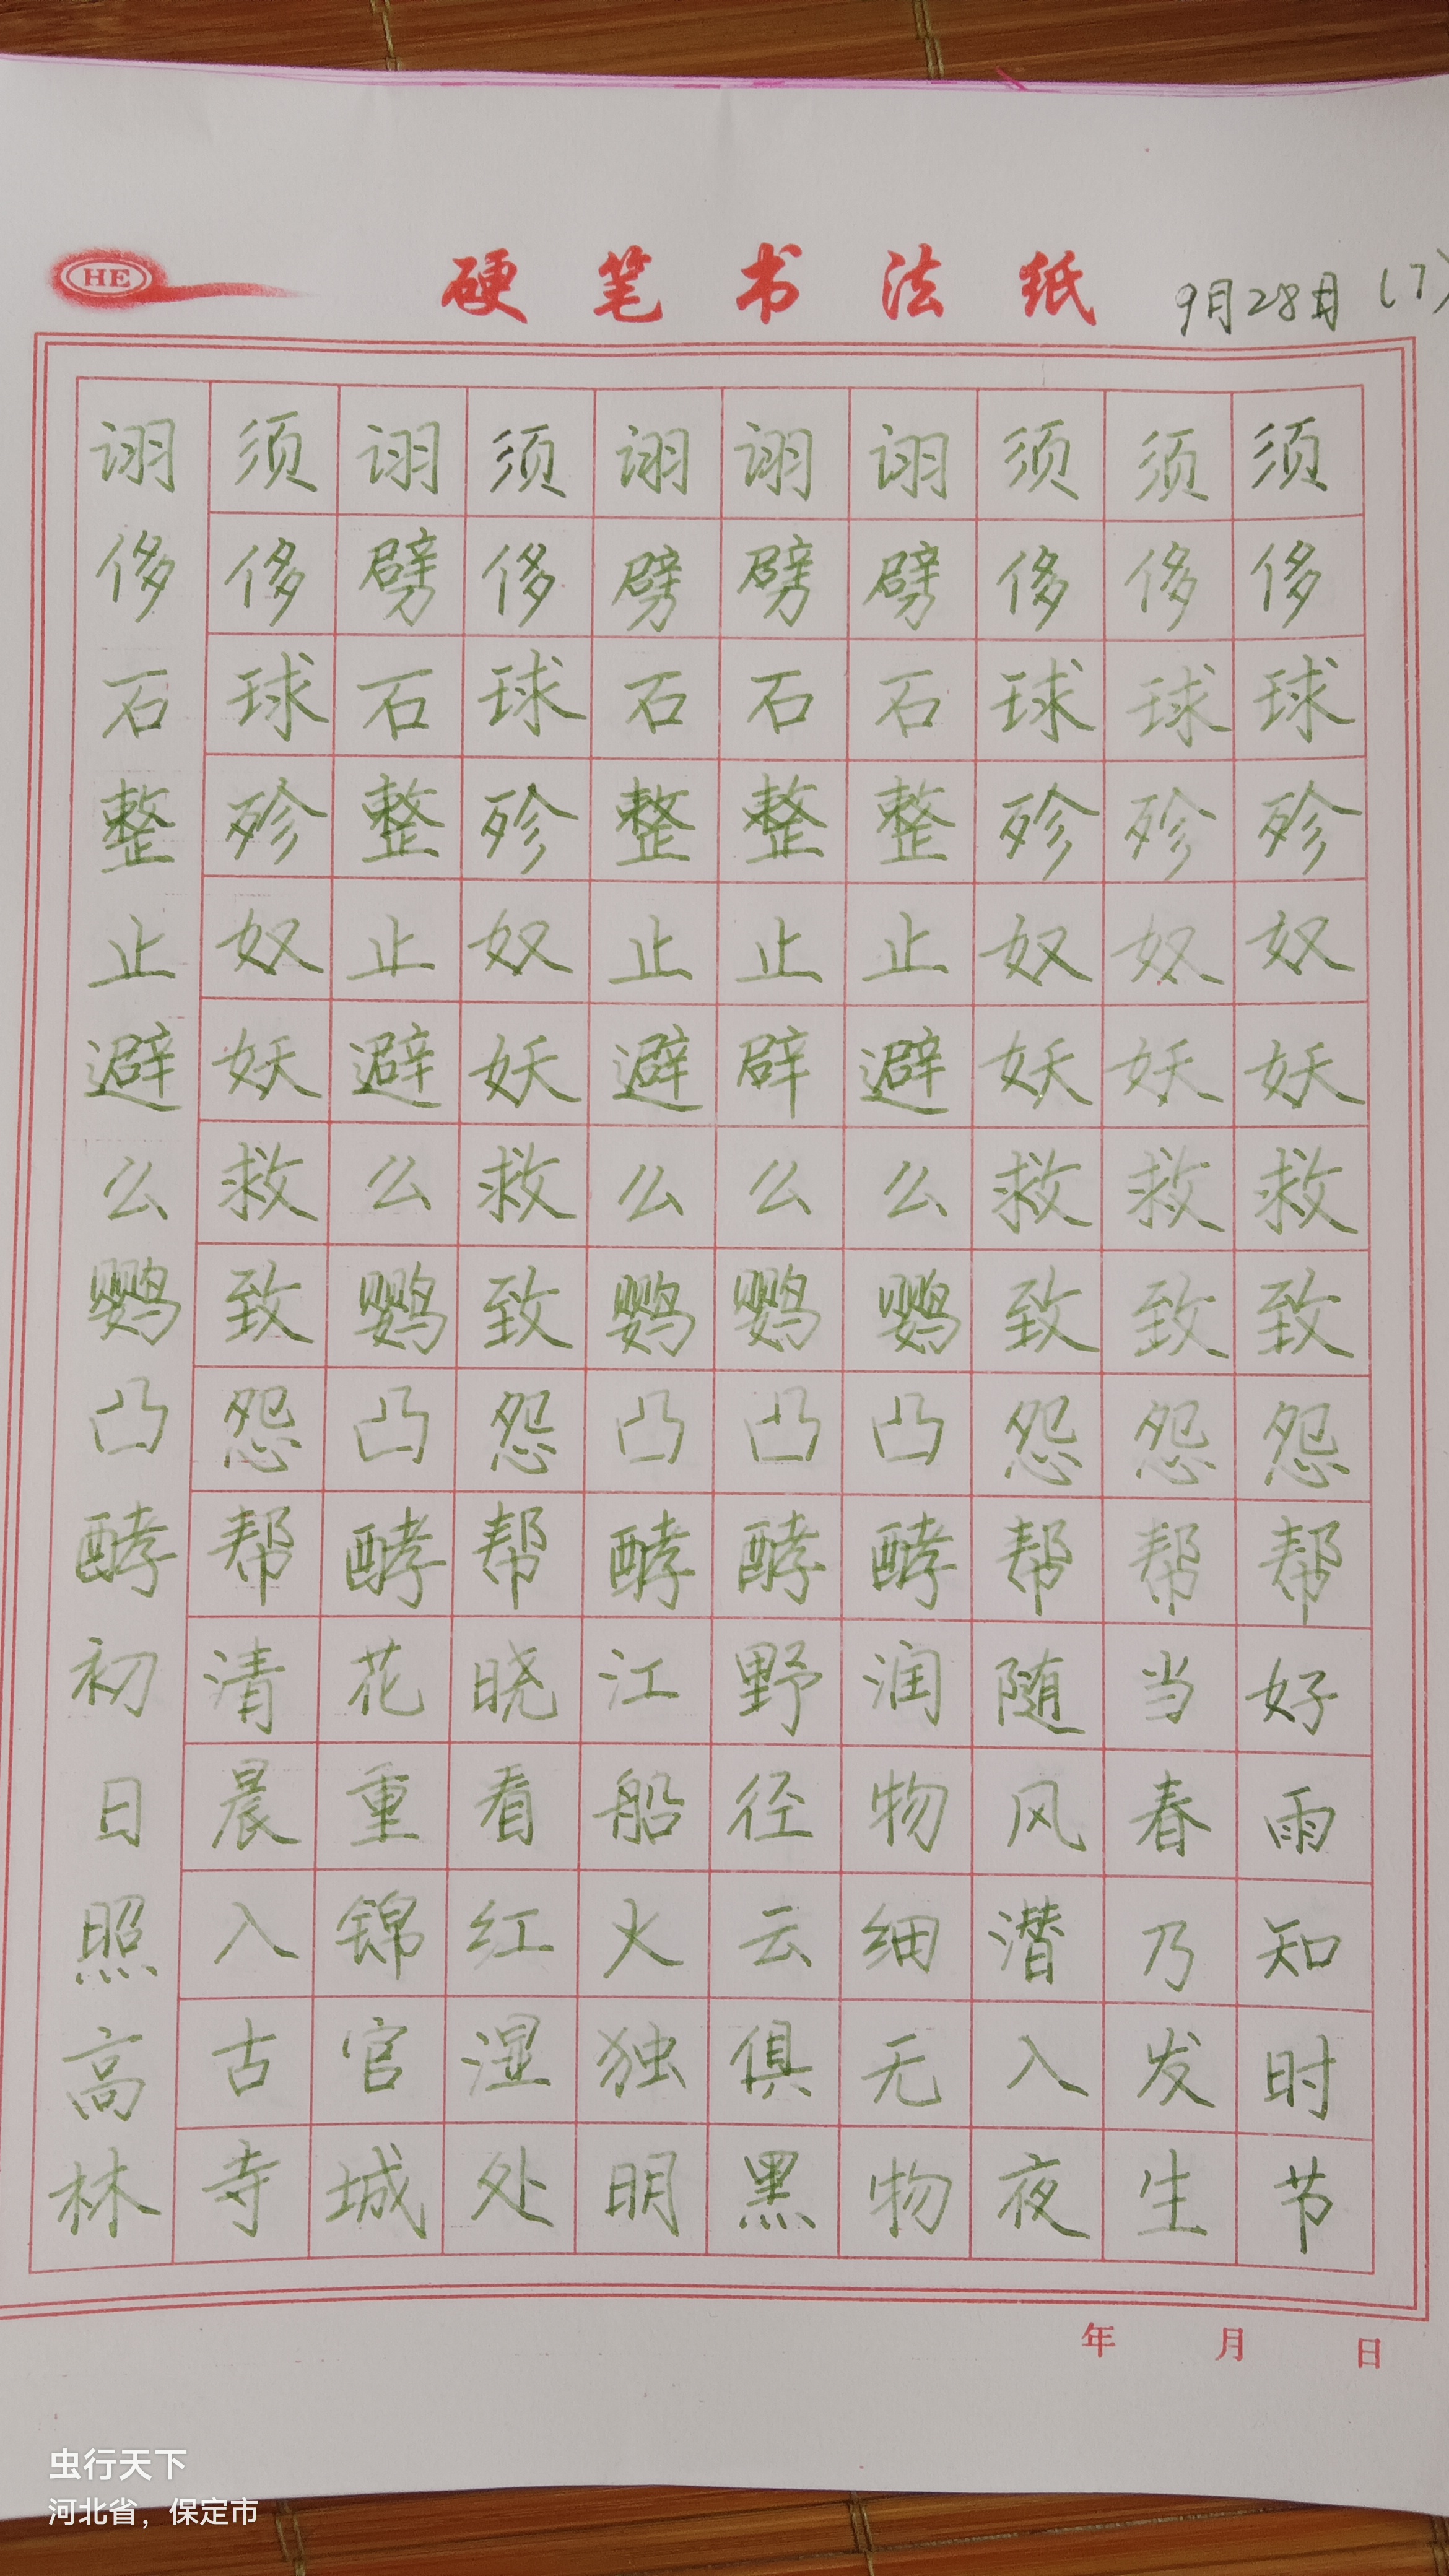 HE
硬笔书法纸
9月28日 (7)
须侈球殄奴妖救致怨帮好雨知时节
须侈球殄奴妖救致怨帮当春乃发生
须侈球殄奴妖救致怨帮随风潜入夜
诩劈石整止避么鹦凸酵润物细无物
诩劈石整止辟么鹦凸酵野径云俱黑
诩劈石整止避么鹦凸酵江船火独明
须侈球殄奴妖救致怨帮晓看红湿处
诩劈石整止避么鹦凸酵花重锦官城
须侈球殄奴妖救致怨帮清晨入古寺
诩侈石整止避么鹦凸酵初日照高林
年 月 日
虫行天下
河北省，保定市